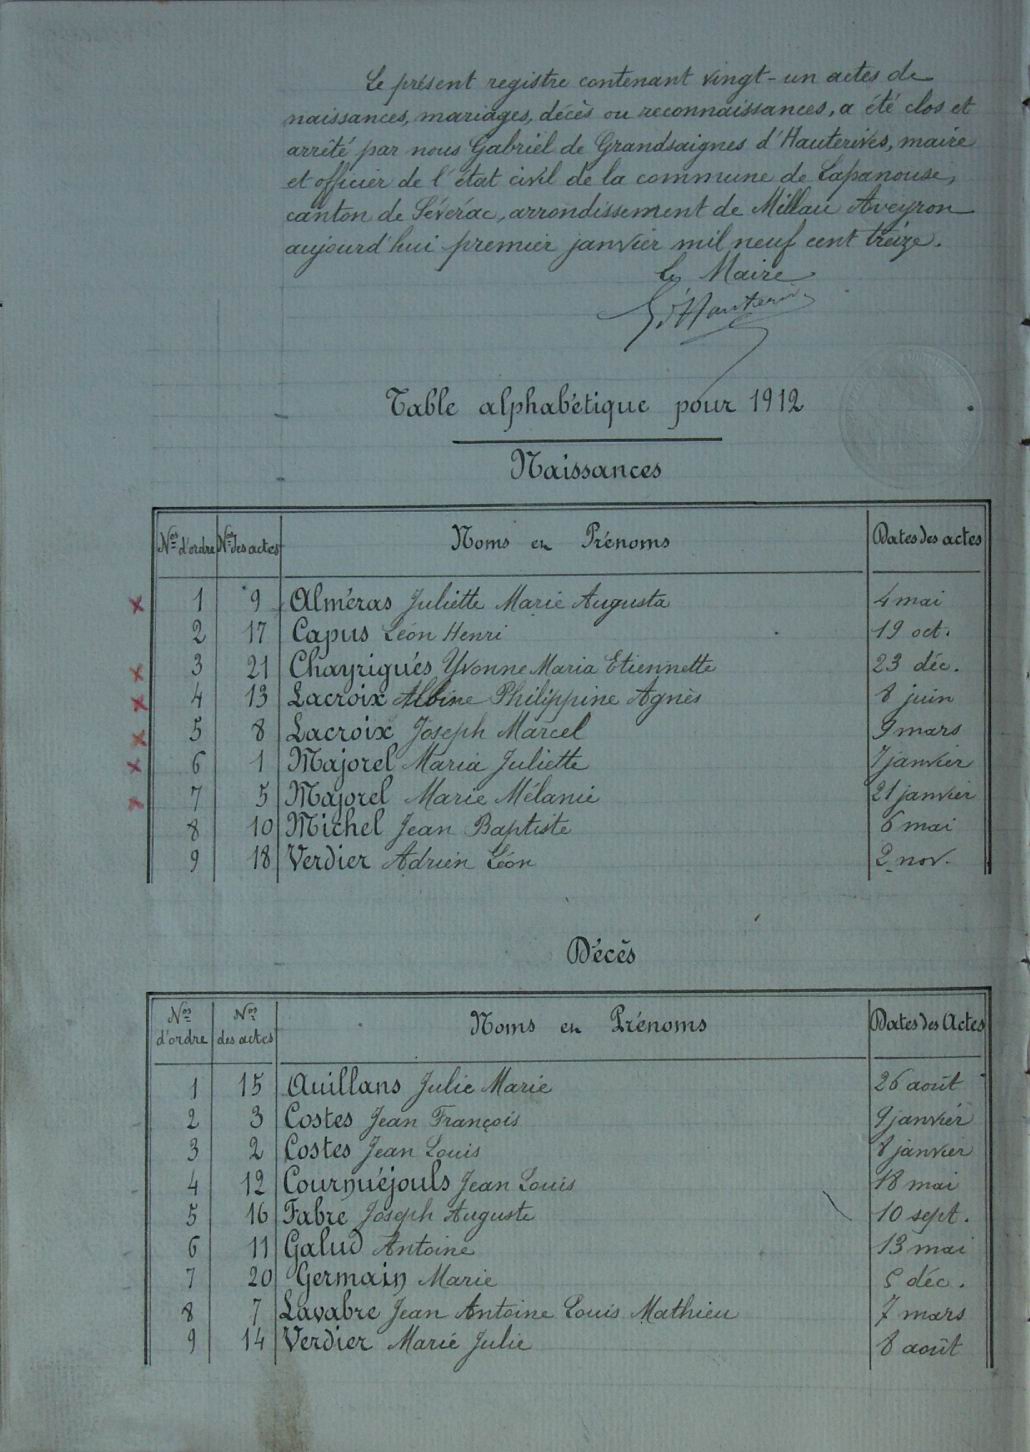 Le présent registre contenant vingt-un actes de
naissances, mariages, décès ou reconnaissances, a été clos et
arrêté par nous Gabriel de Grandsaignes d'Hauterives, maire
et officier de l'état civil de la commune de Lapanouse,
canton de Séverac, arrondissement de Millau Aveyron
aujourd'hui premier janvier mil neuf cent treize.
Le Maire
Table alphabétique pour 1912
Naissances
Nos d'ordre Nos des actes Noms en Prénoms Dates des actes
1 9 Alméras Juliette Marie Augusta 4 mai
2 17 Capus Léon Henri 19 oct.
3 21 Chayrigués Yvonne Maria Etiennette 23 déc.
4 13 Lacroix Albine Philippine Agnès 8 juin
5 8 Lacroix Joseph Marcel 9 mars
6 1 Majorel Maria Juliette 7 janvier
7 5 Majorel Marie Mélanie 21 janvier
8 10 Michel Jean Baptiste 6 mai
9 18 Verdier Adrien Léon 2 nov.
Décès
Nos d'ordre Nos des actes Noms en Prénoms Dates des Actes
1 15 Auillans Julie Marie 26 août
2 3 Costes Jean François 9 janvier
3 2 Costes Jean Louis 8 janvier
4 12 Cournuéjouls Jean Louis 18 mai
5 16 Fabre Joseph Auguste 10 sept.
6 11 Galud Antoine 13 mai
7 20 Germain Marie 5 déc.
8 7 Lavabre Jean Antoine Louis Mathieu 7 mars
9 14 Verdier Marie Julie 8 août